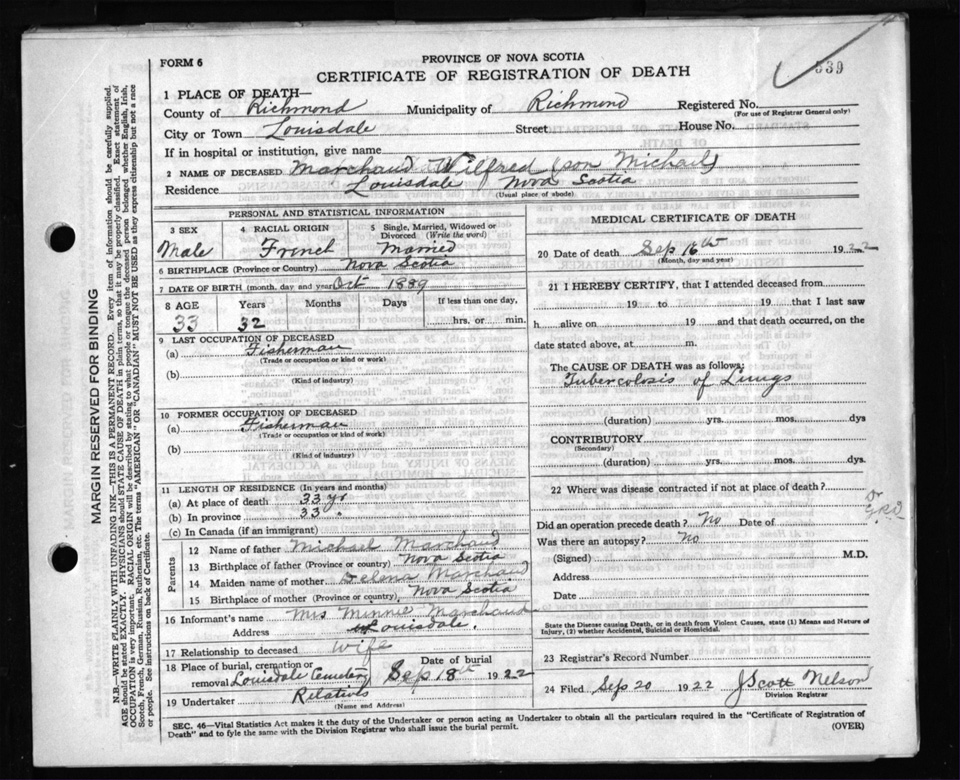 FORM 6
PROVINCE OF NOVA SCOTIA
CERTIFICATE OF REGISTRATION OF DEATH
539
1 PLACE OF DEATH—
County of Richmond Municipality of Richmond Registered No.
(For use of Registrar General only)
City or Town Louisdale Street House No.
If in hospital or institution, give name
2 NAME OF DECEASED Marchand Wilfred (son Michael)
Residence Louisdale Nova Scotia
(Usual place of abode)
PERSONAL AND STATISTICAL INFORMATION
3 SEX 4 RACIAL ORIGIN 5 Single, Married, Widowed or Divorced (Write the word)
Male French Married
6 BIRTHPLACE (Province or Country) Nova Scotia
7 DATE OF BIRTH (month, day and year) Oct 1889
8 AGE Years Months Days If less than one day,
33 32 hrs. or min.
9 LAST OCCUPATION OF DECEASED
(a) Fisherman
(Trade or occupation or kind or work)
(b)
(Kind of industry)
10 FORMER OCCUPATION OF DECEASED
(a) Fisherman
(Trade or occupation or kind or work)
(b)
(Kind of industry)
11 LENGTH OF RESIDENCE (In years and months)
(a) At place of death 33 yr
(b) In province 33 "
(c) In Canada (if an immigrant)
Parents
12 Name of father Michael Marchand
13 Birthplace of father (Province or Country) Nova Scotia
14 Maiden name of mother Delena Marchand
15 Birthplace of mother (Province or country) Nova Scotia
16 Informant's name Mrs Minnie Marchand
Address Louisdale.
17 Relationship to deceased Wife
18 Place of burial, cremation or removal Louisdale Cemetery Date of burial Sep 18th 1922
19 Undertaker Relatives
(Name and Address)
MEDICAL CERTIFICATE OF DEATH
20 Date of death Sep 16th 1922
(Month, day and year)
21 I HEREBY CERTIFY, that I attended deceased from
19 to 19 that I last saw
h alive on 19 and that death occurred, on the
date stated above, at m.
The CAUSE OF DEATH was as follows:
Tubercolosis of Lungs
(duration) yrs. mos. dys
CONTRIBUTORY
(Secondary)
(duration) yrs. mos. dys.
22 Where was disease contracted if not at place of death?
Did an operation precede death? No Date of
Was there an autopsy? No
(Signed) M.D.
Address
Date
State the Disease causing Death, or in death from Violent Causes, state (1) Means and Nature of
Injury, (2) whether Accidental, Suicidal or Homicidal.
23 Registrar's Record Number
24 Filed Sep 20 1922 J Scott Nelson
Division Registrar
SEC. 46—Vital Statistics Act makes it the duty of the Undertaker or person acting as Undertaker to obtain all the particulars required in the "Certificate of Registration of
Death" and to fyle the same with the Division Registrar who shall issue the burial permit. (OVER)
MARGIN RESERVED FOR BINDING
N.B.—WRITE PLAINLY WITH UNFADING INK—THIS IS A PERMANENT RECORD. Every item of information should be carefully supplied.
AGE should be stated EXACTLY. PHYSICIANS should STATE CAUSE OF DEATH in plain terms, so that it may be properly classified. Exact statement of
OCCUPATION is very important. RACIAL ORIGIN will be described by stating to what people or tongue the deceased person belonged whether English, Irish,
Scotch, French, German, Russian, Ruthenian, etc. The terms "AMERICAN" OR "CANADIAN" MUST NOT BE USED as they express citizenship but not a race
or people. See instructions on back of Certificate.